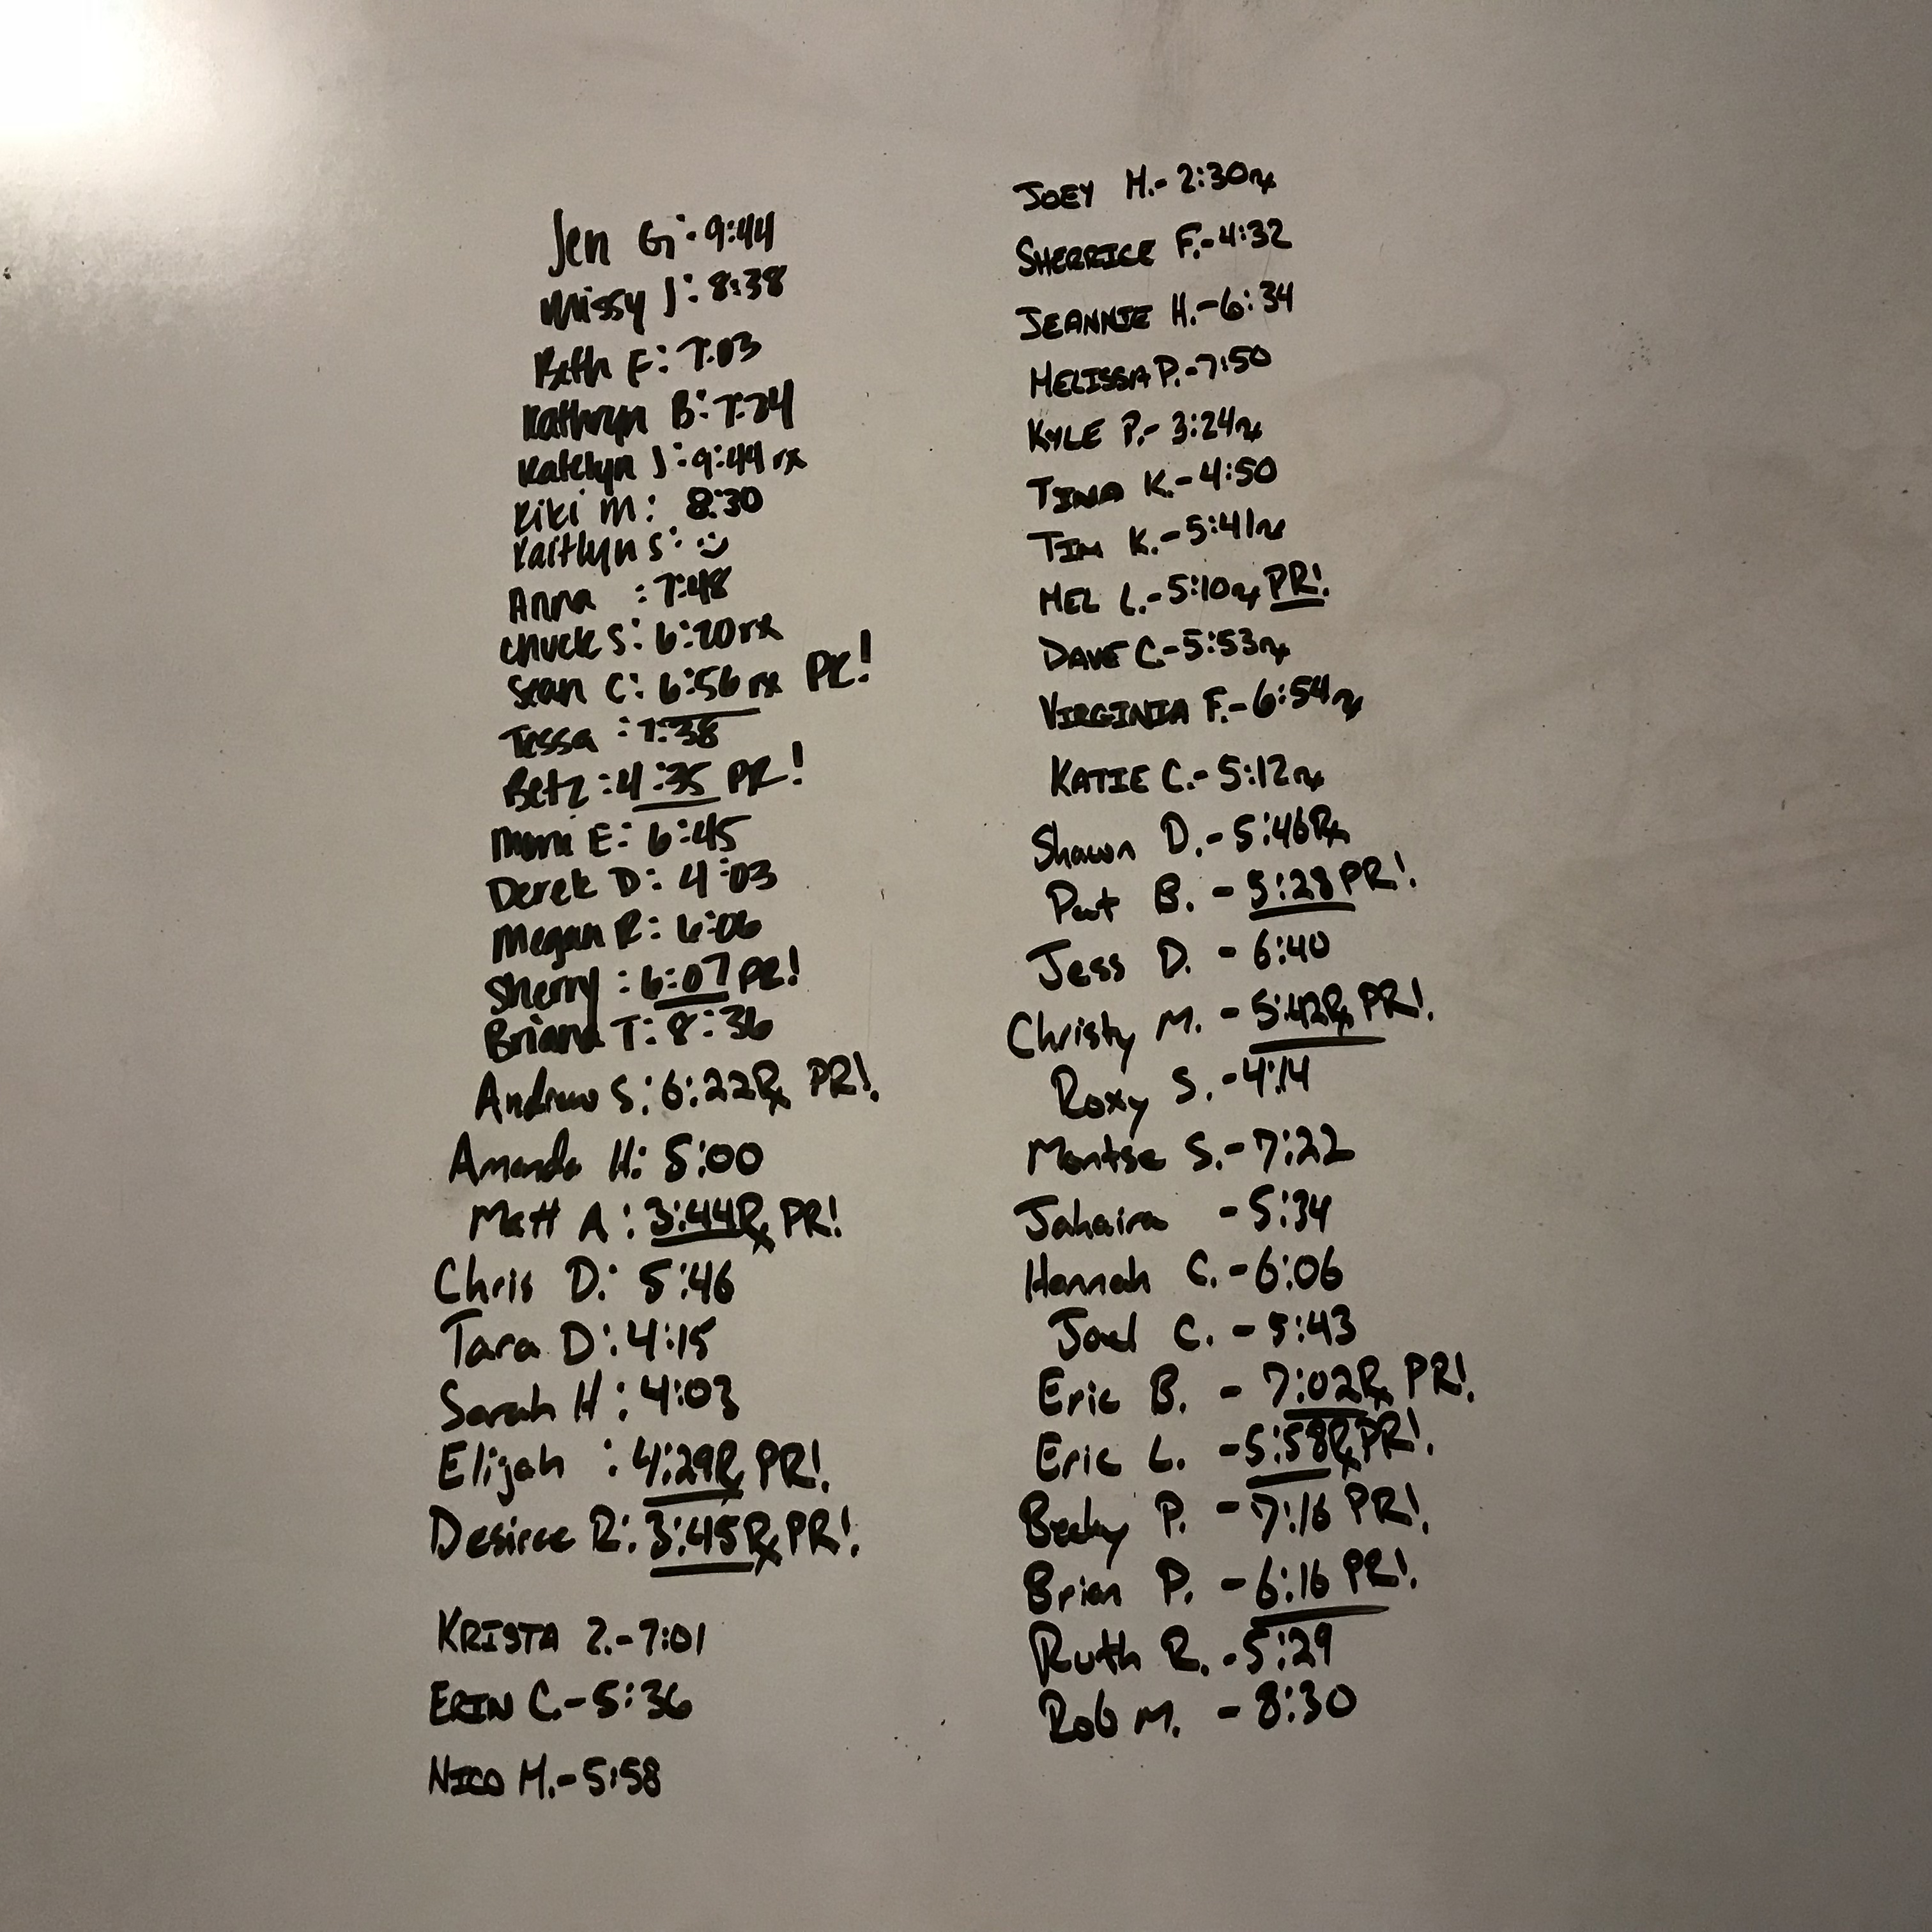 Jen G: 9:44
Missy J: 8:38
Beth F: 7:03
Kathryn B: 7:24
Katelyn J: 9:44 rx
Kiki M: 8:30
Kaitlyn S: :)
Anna : 7:48
Chuck S: 6:20 rx
Sean C: 6:56 rx PR!
Tessa : 7:38
Betz : 4:35 PR!
E: 6:45
Derek D: 4:03
Megan R: 6:06
Sherry : 6:07 PR!
Briana T: 8:36
Andrew S: 6:22Rx PR!
Amanda H: 5:00
Matt A: 3:44Rx PR!
Chris D: 5:46
Tara D: 4:15
Sarah H: 4:03
Elijah : 4:29Rx PR!
Desiree R: 3:45Rx PR!
KRISTA Z.-7:01
ERIN C.-5:36
NICO M.-5:58
JOEY H.-2:30rx
SHERRICE F.-4:32
JEANNIE H.-6:34
MELISSA P.-7:50
KYLE P.-3:24rx
TINA K.-4:50
TIM K.-5:41rx
MEL L.-5:10rx PR!
DAVE C.-5:53rx
VIRGINIA F.-6:54rx
KATIE C.-5:12rx
Shawn D.-5:46Rx
Pat B. - 5:28 PR!
Jess D. - 6:40
Christy M. - 5:42Rx PR!
Roxy S. - 4:14
Montse S.-7:22
Jahaira - 5:34
Hannah C. - 6:06
Joel C. - 5:43
Eric B. - 7:02Rx PR!
Eric L. - 5:58Rx PR!
Becky P. - 7:16 PR!
Brian P. - 6:16 PR!
Ruth R. - 5:29
Rob M. - 8:30